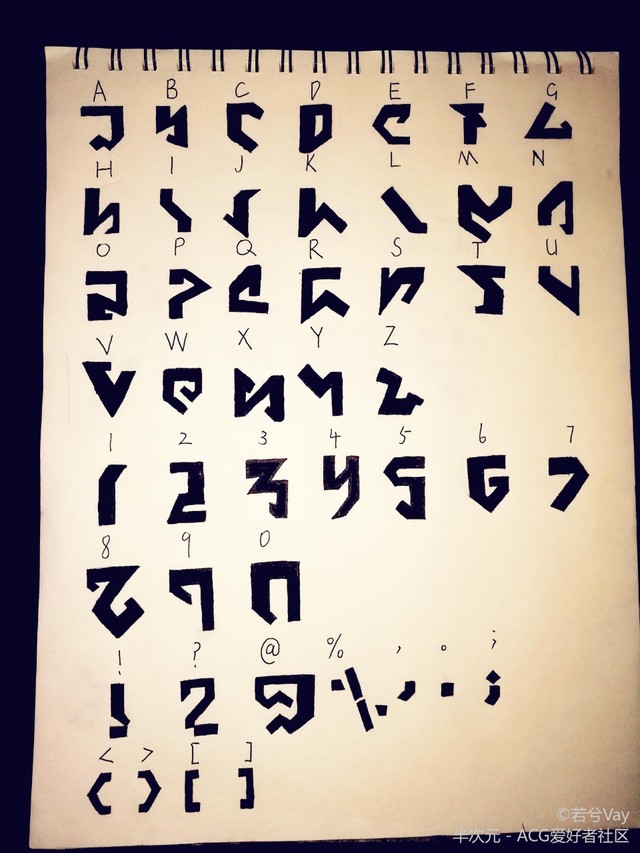 A B C D E F G
H I J K L M N
O P Q R S T U
V W X Y Z
1 2 3 4 5 6 7
8 9 0
! ? @ % , 。 ;
< > [ ]
©若兮Vay
半次元 - ACG爱好者社区